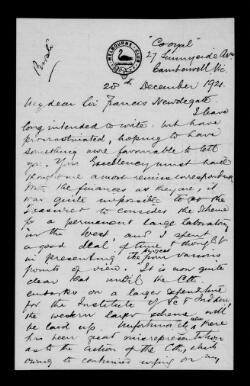 Private
MELBOURNE CLUB
"Cooyal"
27 Sunnyside Av
Camberwell Vic
28th December 1921.
My dear Sir Francis Newdegate
I have
long intended to write but have
procrastinated, hoping to have
something more favourable to tell
you. Your Excellency must have
thought me a most remiss correspondent.
With the finances as they are, it
was quite impossible to get the
Treasurer to consider the scheme
for a permanent large laboratory
in the West and I spent
a good deal of time & thought
in presenting the project from various
points of view. It is now quite
clear that until the Cth
embarks on a larger expenditure
for the Institute of Sc & Industry
the western larger scheme will
be laid up. Unfortunately there
has been great misrepresentation
as to the action of the Cth,
owing to continued on my